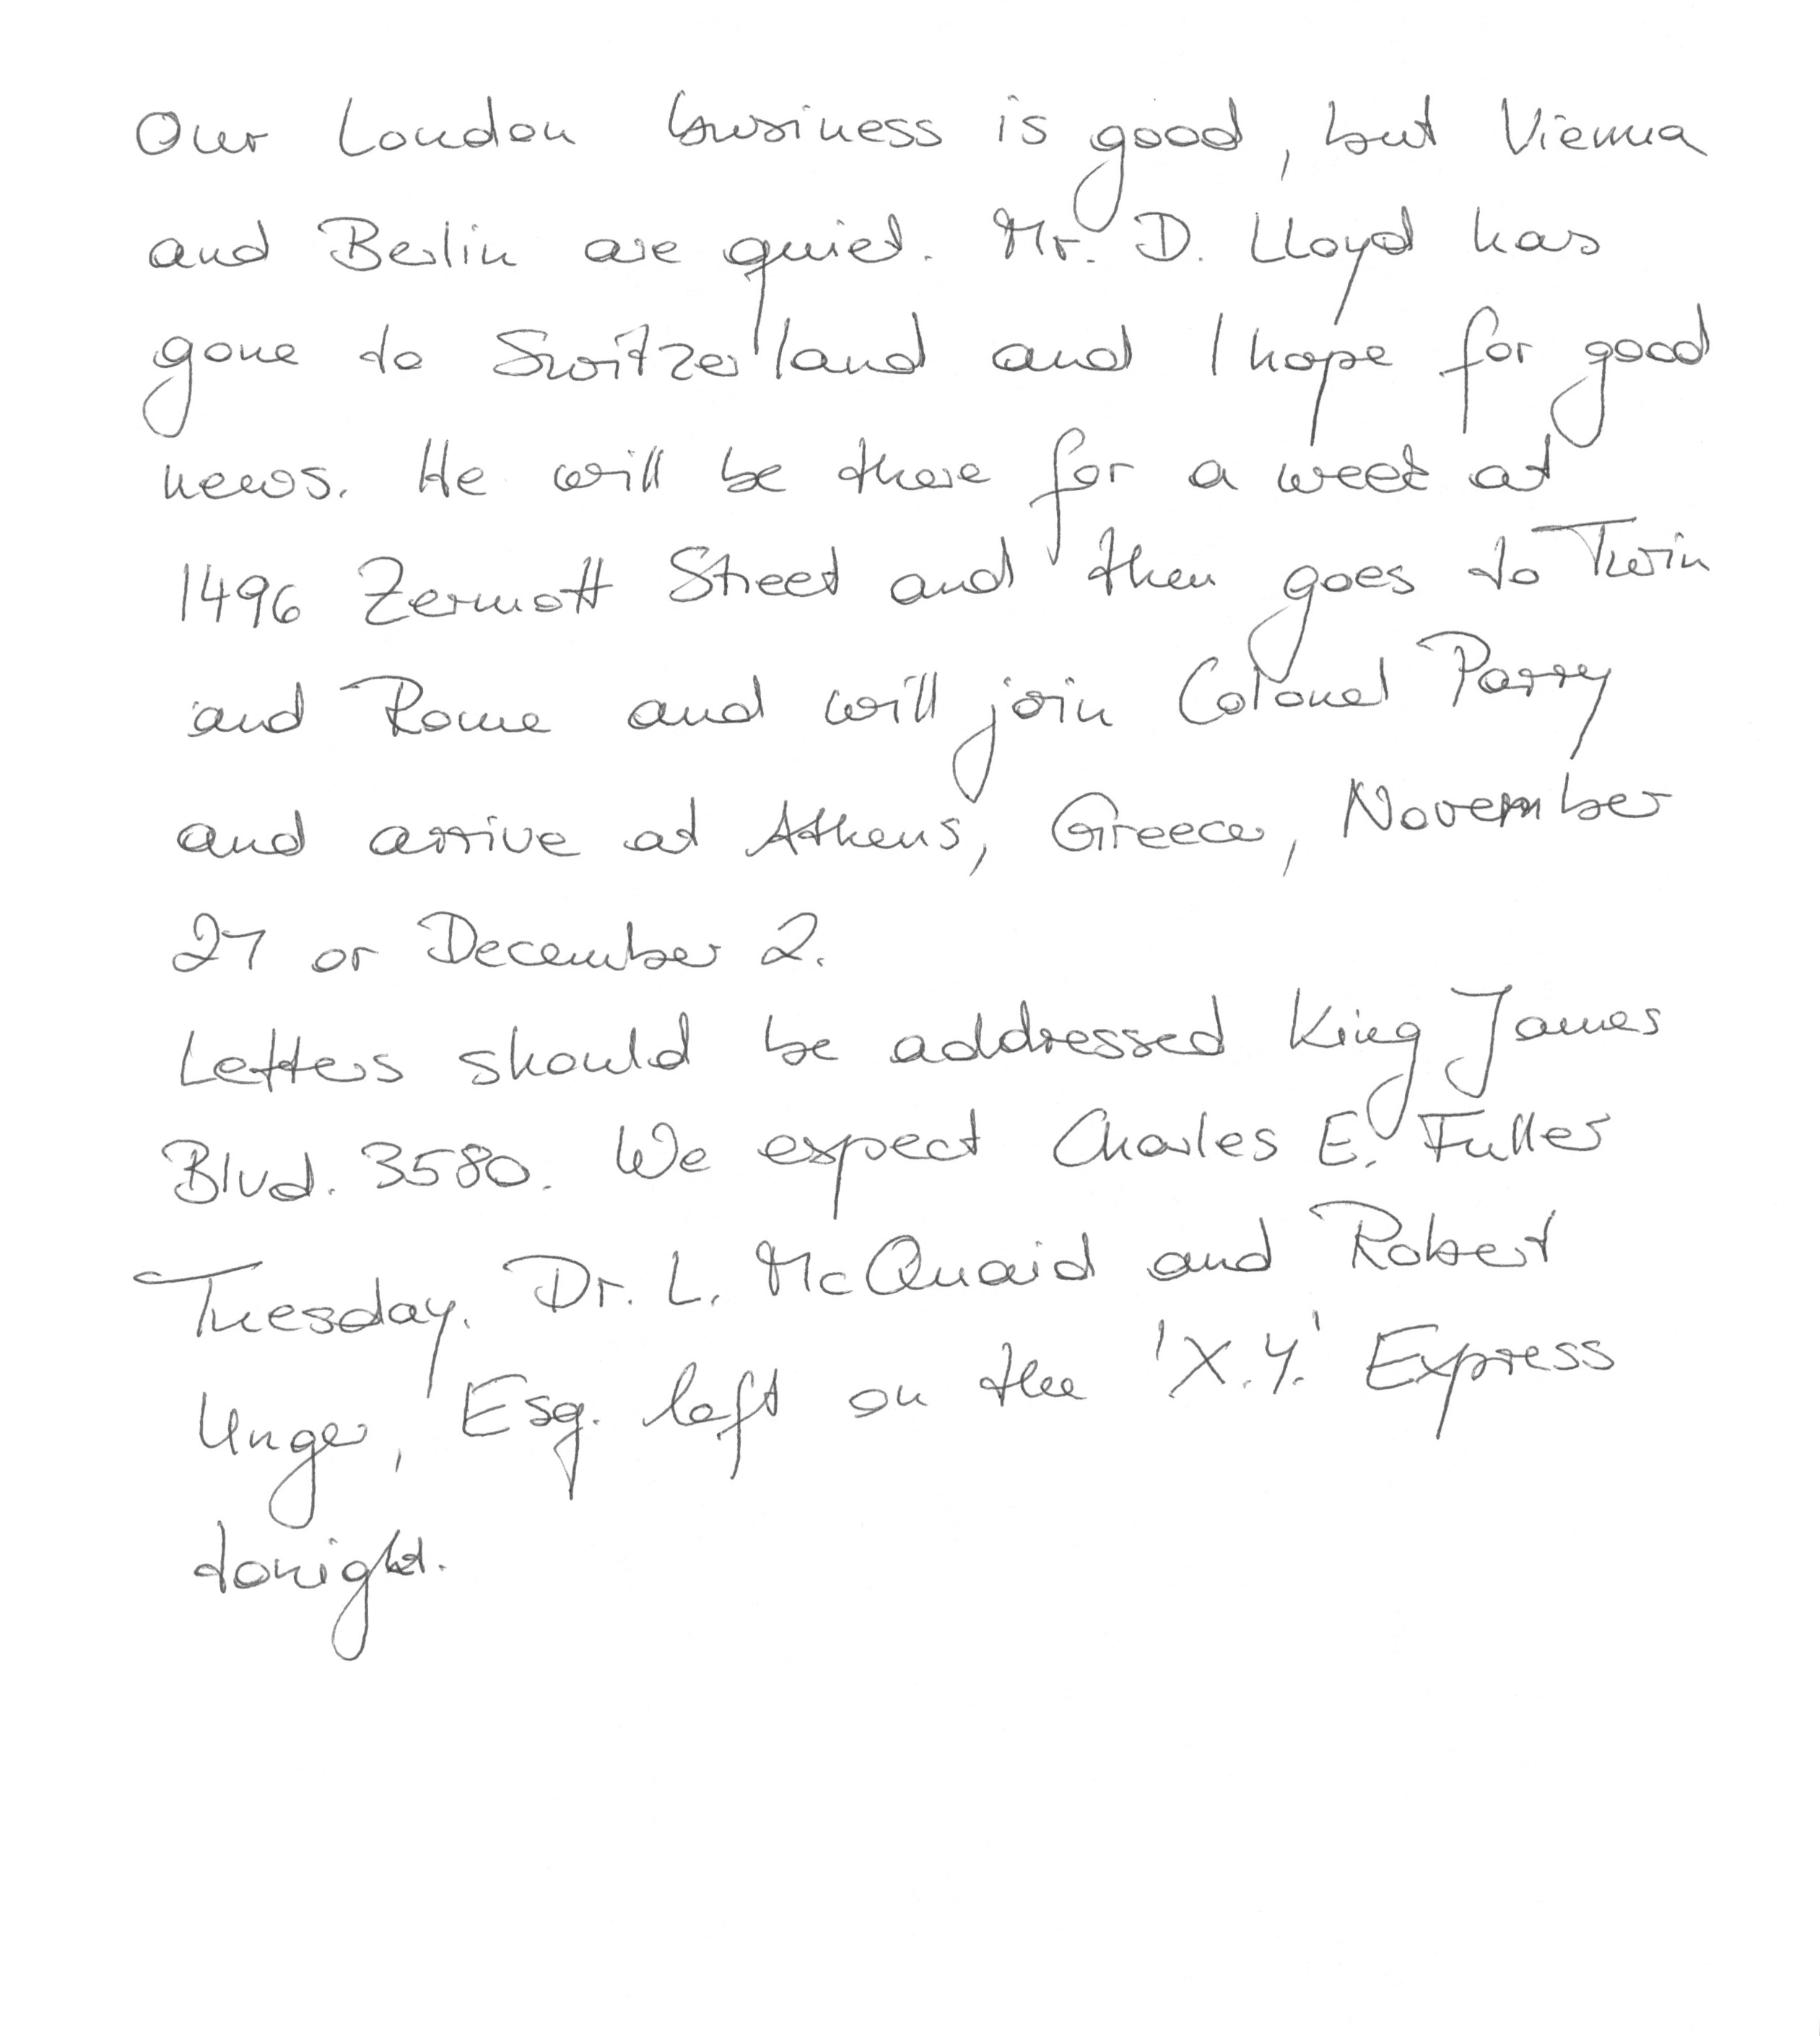 Our London business is good, but Vienna
and Berlin are quiet. Mr. D. Lloyd has
gone to Switzerland and I hope for good
news. He will be there for a week at
1496 Zermott Street and then goes to Turin
and Rome and will join Colonel Parry
and arrive at Athens, Greece, November
27 or December 2.
Letters should be addressed King James
Blvd. 3580. We expect Charles E. Fuller
Tuesday. Dr. L. McQuaid and Robert
Unger, Esq. left on the 'X.Y.' Express
tonight.